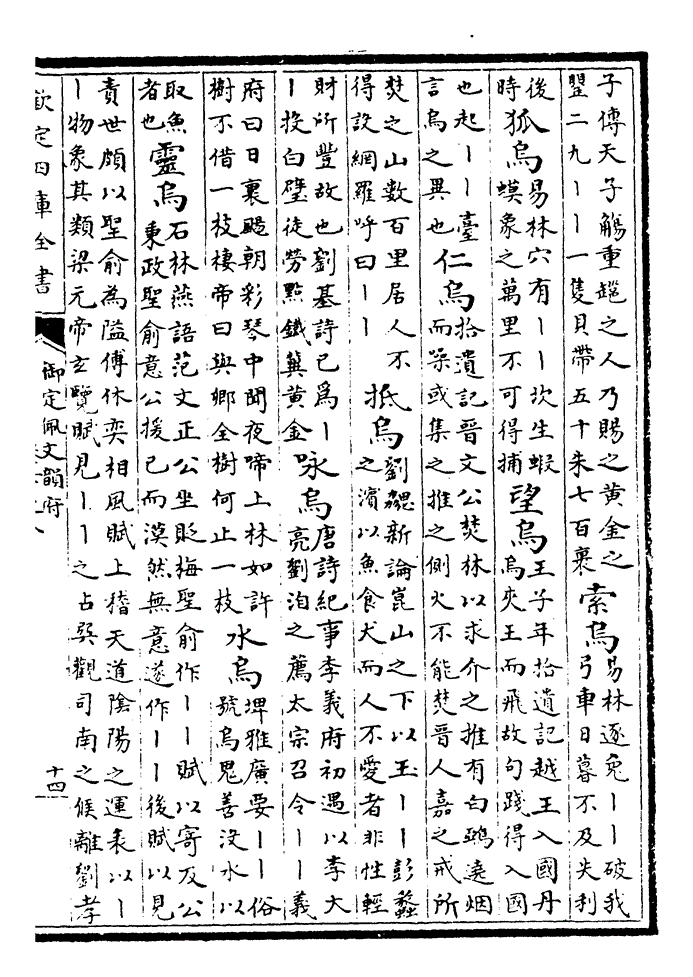 子傳天子觴重䣙之人乃賜之黄金之
罌二九丨丨一隻貝帶五十朱七百裹
索烏
易林逐兔丨丨破我
弓車日暮不及失利
後
時
狐烏
易林穴有丨丨坎生蝦
蟆象之萬里不可得捕
望烏
王子年拾遺記越王入國丹
烏夾王而飛故句踐得入國
也起丨丨臺
言烏之異也
仁烏
拾遺記晉文公焚林以求介之推有白鵶遶烟
而噪或集之推之側火不能焚晉人嘉之戒所
焚之山數百里居人不
得設網羅呼曰丨丨
抵烏
劉勰新論崑山之下以玉丨丨彭蠡
之濱以魚食犬而人不愛者非性輕
財所豐故也劉基詩已為丨
丨投白璧徒勞㸃鐵冀黄金
咏烏
唐詩紀事李義府初遇以李大
亮劉洎之薦太宗召令丨丨義
府曰日裏颺朝彩琴中聞夜啼上林如許
樹不借一枝棲帝曰與卿全樹何止一枝
水烏
埤雅廣要丨丨俗
號烏鬼善沒水以
取魚
者也
靈烏
石林燕語范文正公坐貶梅聖俞作丨丨賦以寄及公
秉政聖俞意公援已而漠然無意遂作丨丨後賦以見
責世頗以聖俞為隘傅休奕相風賦上稽天道陰陽之運表以丨
丨物象其類梁元帝玄覽賦見丨丨之占巽觀司南之候離劉孝
欽定四庫全書
御定佩文韻府
十四